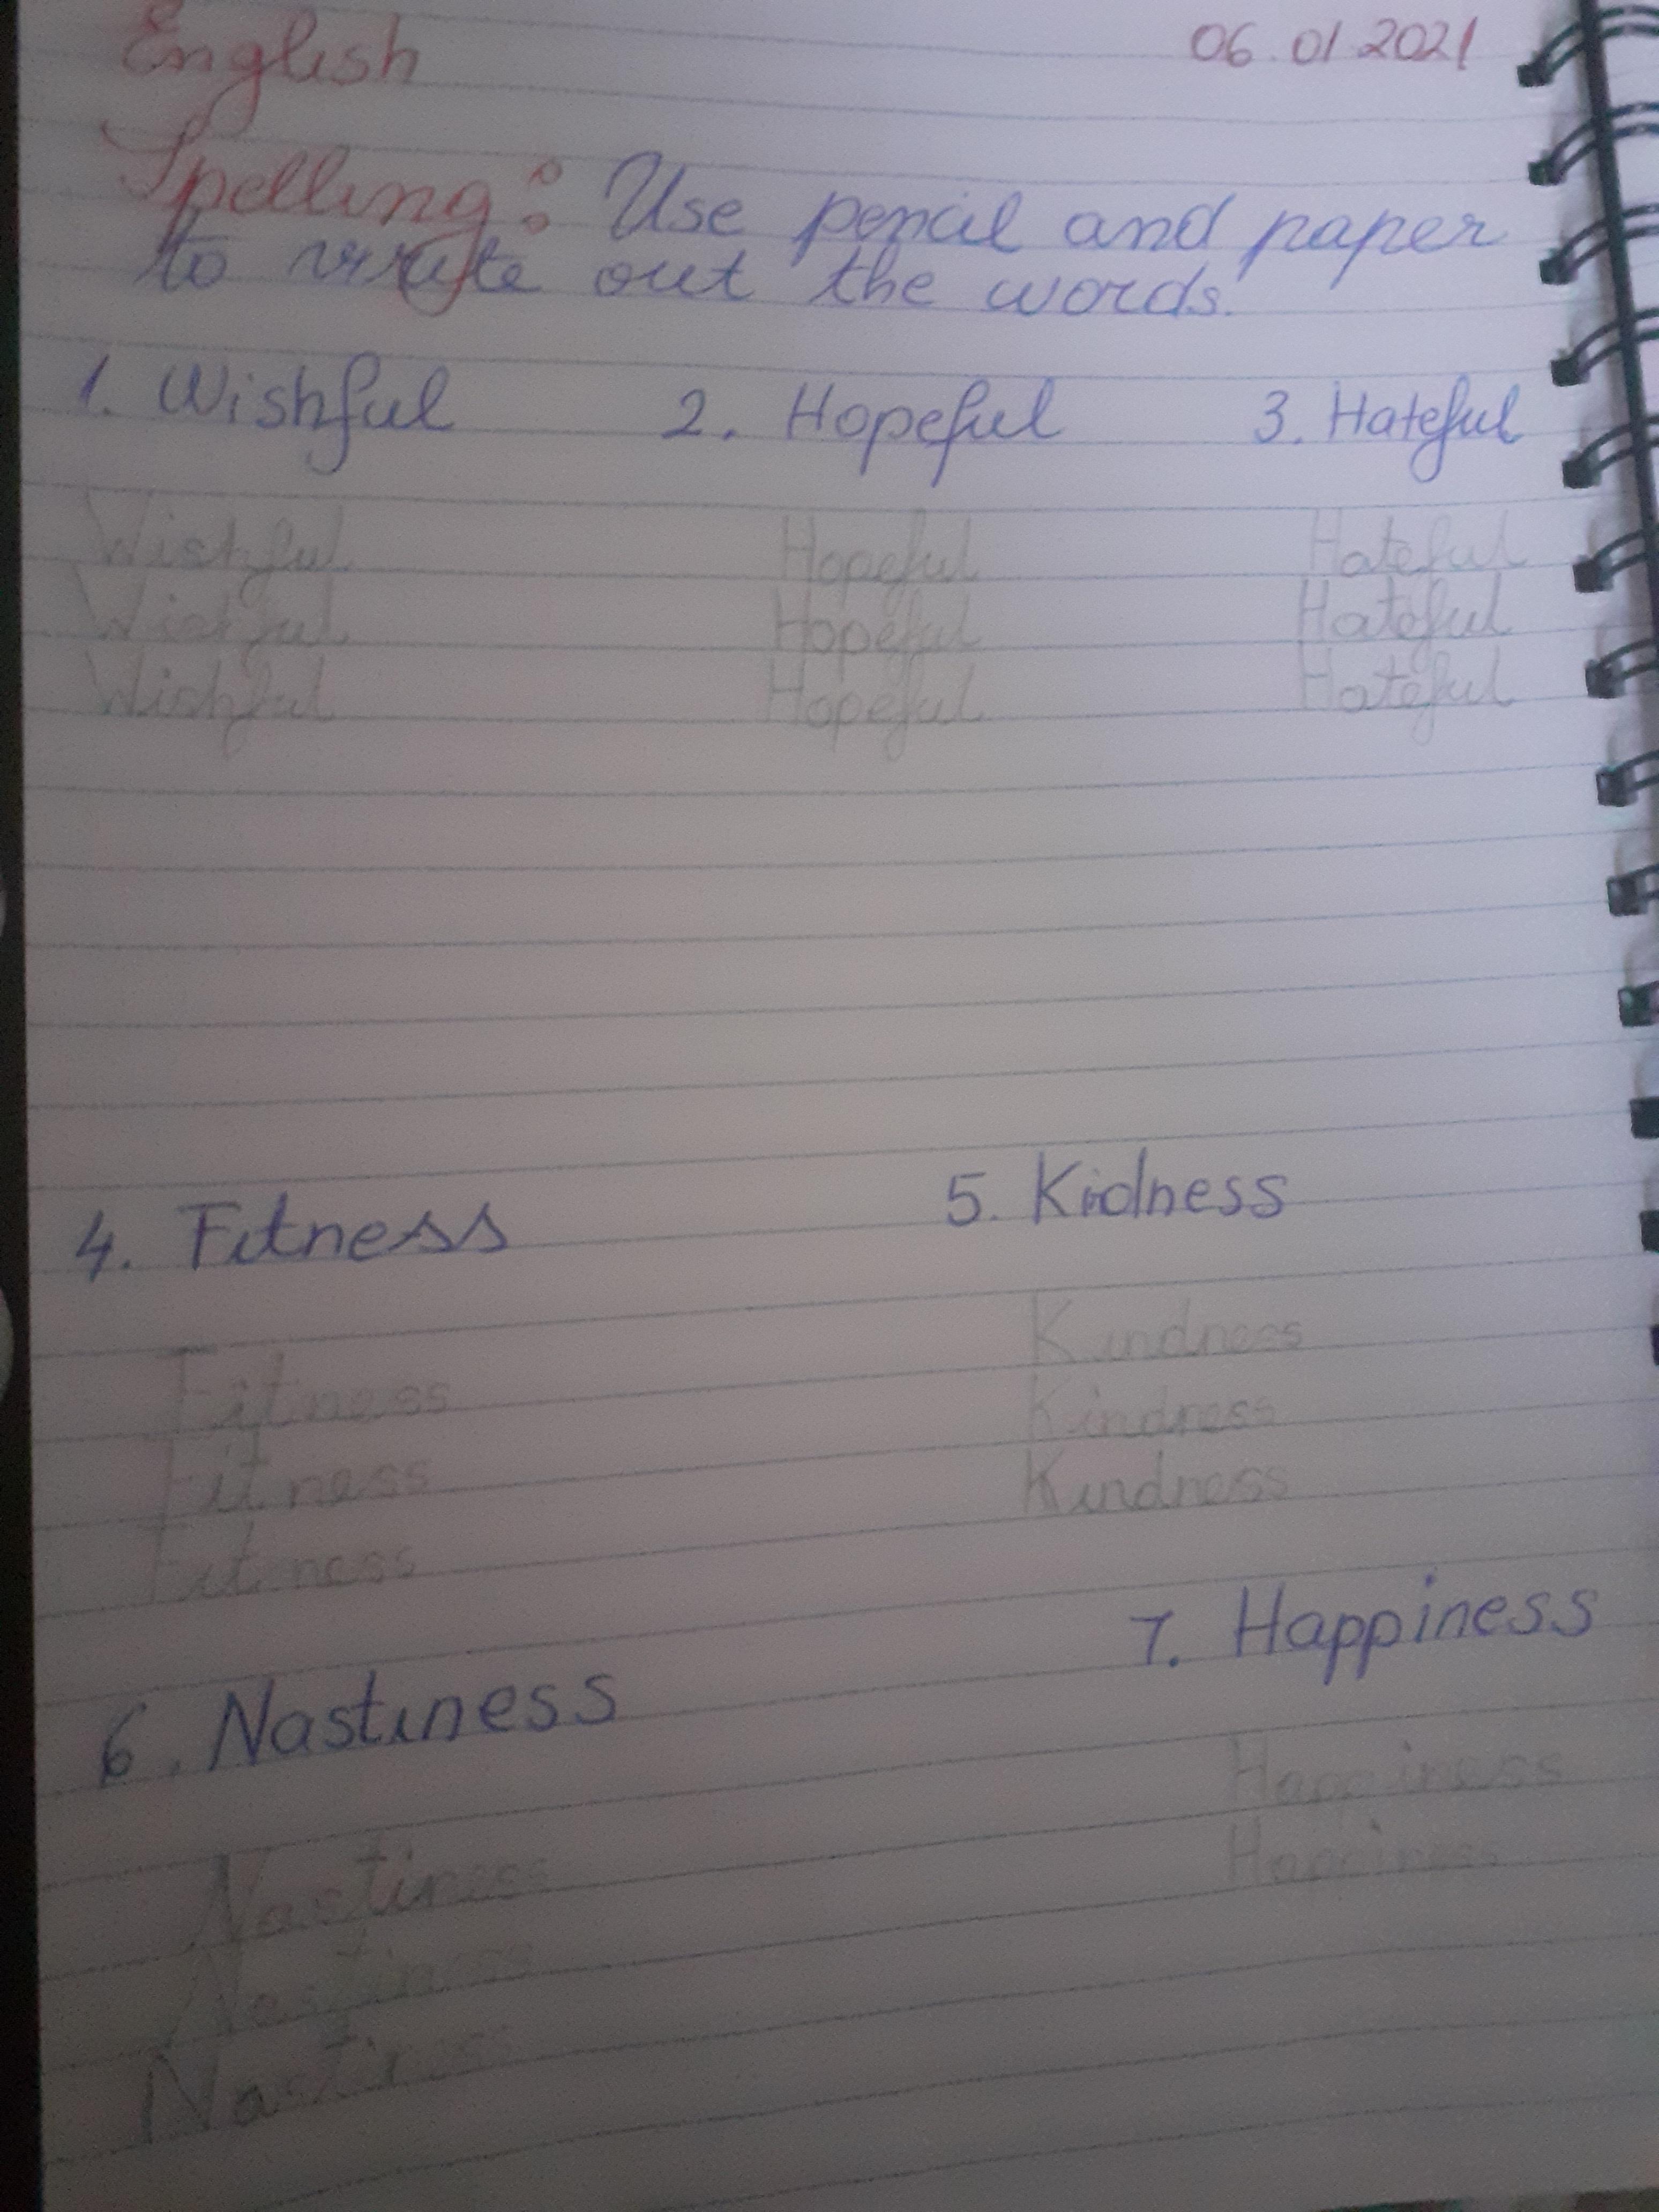 English 06.01.2021
Spelling: Use pencil and paper
to write out the words.
1. Wishful 2. Hopeful 3. Hateful
Wishful Hopeful Hateful
Wishful Hopeful Hateful
Wishful Hopeful Hateful
4. Fitness 5. Kidness
Fitness Kindness
Fitness Kindness
Fitness Kindness
6. Nastiness 7. Happiness
Nastiness Happiness
Nastiness Happiness
Nastiness